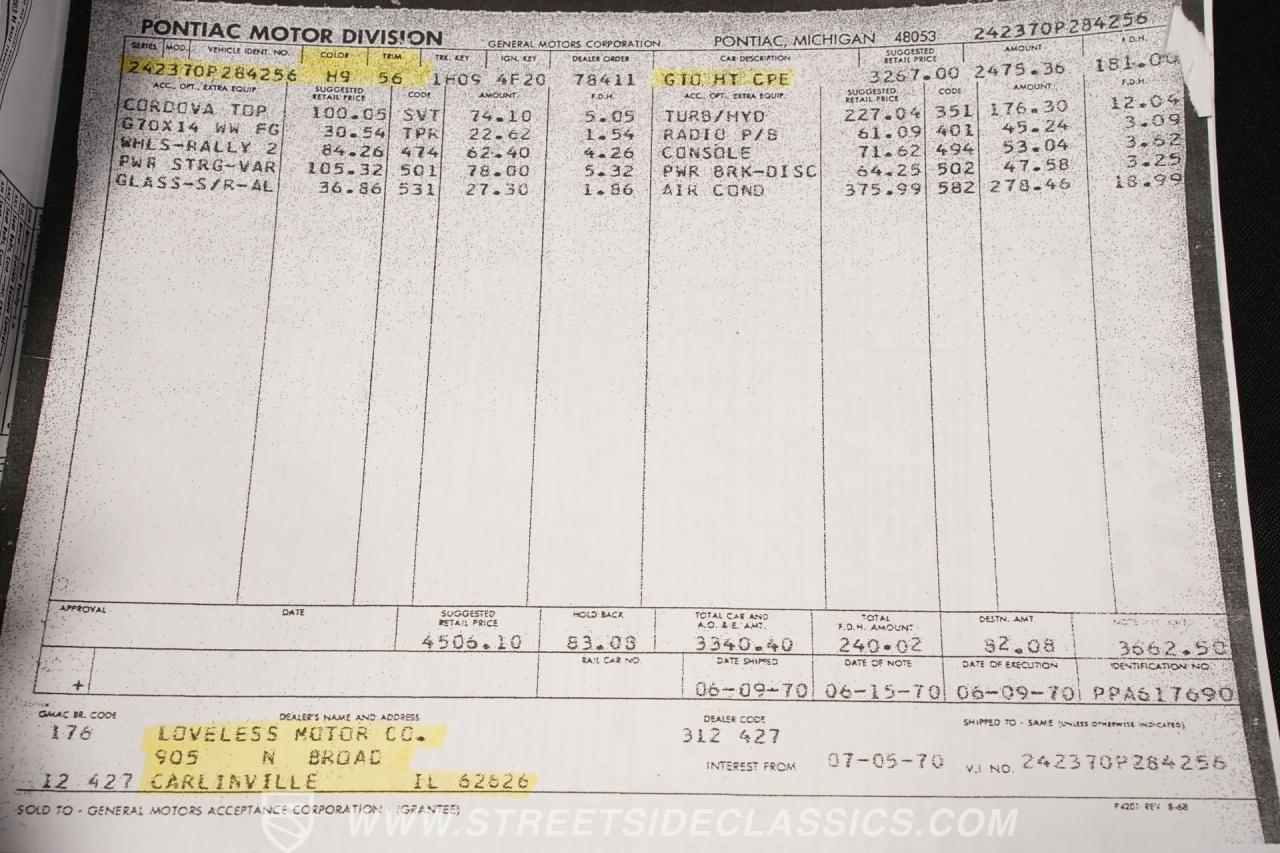 PONTIAC MOTOR DIVISION GENERAL MOTORS CORPORATION PONTIAC, MICHIGAN 48053 242370P284256
SERIES MOD. VEHICLE IDENT. NO. COLOR TRIM TRK. KEY IGN. KEY DEALER ORDER CAR DESCRIPTION SUGGESTED RETAIL PRICE AMOUNT F.D.H.
242370P284256 H9 56 1H09 4F20 78411 GTO HT CPE 3267.00 2475.36 181.00
ACC., OPT., EXTRA EQUIP. SUGGESTED RETAIL PRICE CODE AMOUNT F.D.H. ACC., OPT., EXTRA EQUIP. SUGGESTED RETAIL PRICE CODE AMOUNT F.D.H.
CORDOVA TOP 100.05 SVT 74.10 5.05 TURB/HYD 227.04 351 176.30 12.04
G70X14 WW FG 30.54 TPR 22.62 1.54 RADIO P/B 61.09 401 45.24 3.09
WHLS-RALLY 2 84.26 474 62.40 4.26 CONSOLE 71.62 494 53.04 3.62
PWR STRG-VAR 105.32 501 78.00 5.32 PWR BRK-DISC 64.25 502 47.58 3.25
GLASS-S/R-AL 36.86 531 27.30 1.86 AIR COND 375.99 582 278.46 18.99
APPROVAL DATE SUGGESTED RETAIL PRICE HOLD BACK TOTAL CAR AND A.O. & E. AMT. TOTAL F.D.H. AMOUNT DESTN. AMT
4506.10 83.08 3340.40 240.02 82.08 3662.50
RAIL CAR NO. DATE SHIPPED DATE OF NOTE DATE OF EXECUTION IDENTIFICATION NO.
+ 06-09-70 06-15-70 06-09-70 PPA617690
GMAC BR. CODE DEALER'S NAME AND ADDRESS DEALER CODE SHIPPED TO - SAME (UNLESS OTHERWISE INDICATED)
176 LOVELESS MOTOR CO. 312 427
905 N BROAD INTEREST FROM 07-05-70 V.I NO. 242370P284256
12 427 CARLINVILLE IL 62626
SOLD TO - GENERAL MOTORS ACCEPTANCE CORPORATION - (GRANTEE) P4201 REV 8-68
WWW.STREETSIDECLASSICS.COM